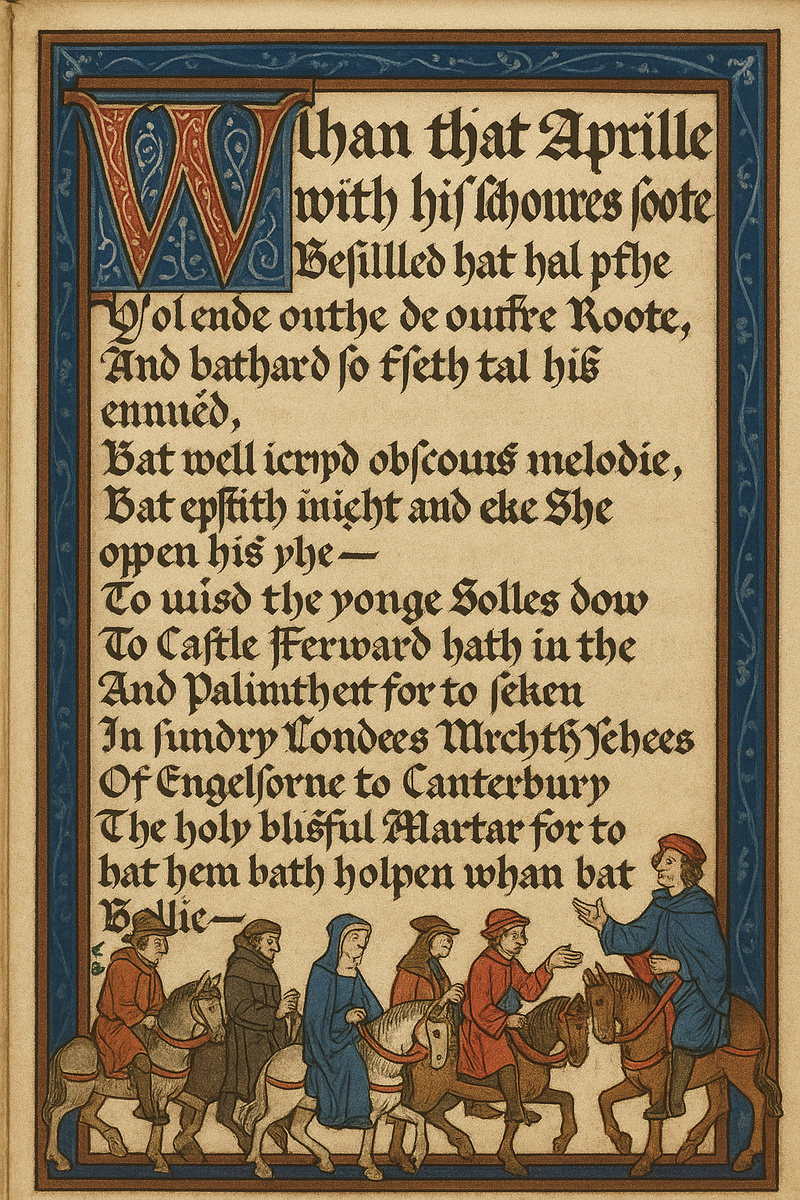 Whan that Aprille
with his schoures soote
Besillled hat hal pfhe
Yolende outhe de outfre Roote,
And bathard so fseth tal his
ennuéd,
Bat well icrıpd obscouıs melodie,
Bat epstith inight and eke She
oppen his yhe—
To uuisd the yonge Solles dow
To Castle fferward hath in the
And Palimthert for to seken
In sundry Condees Mrchth Yehees
Of Engelsorne to Canterbury
The holy blisful Martar for to
hat hem bath holpen whan bat